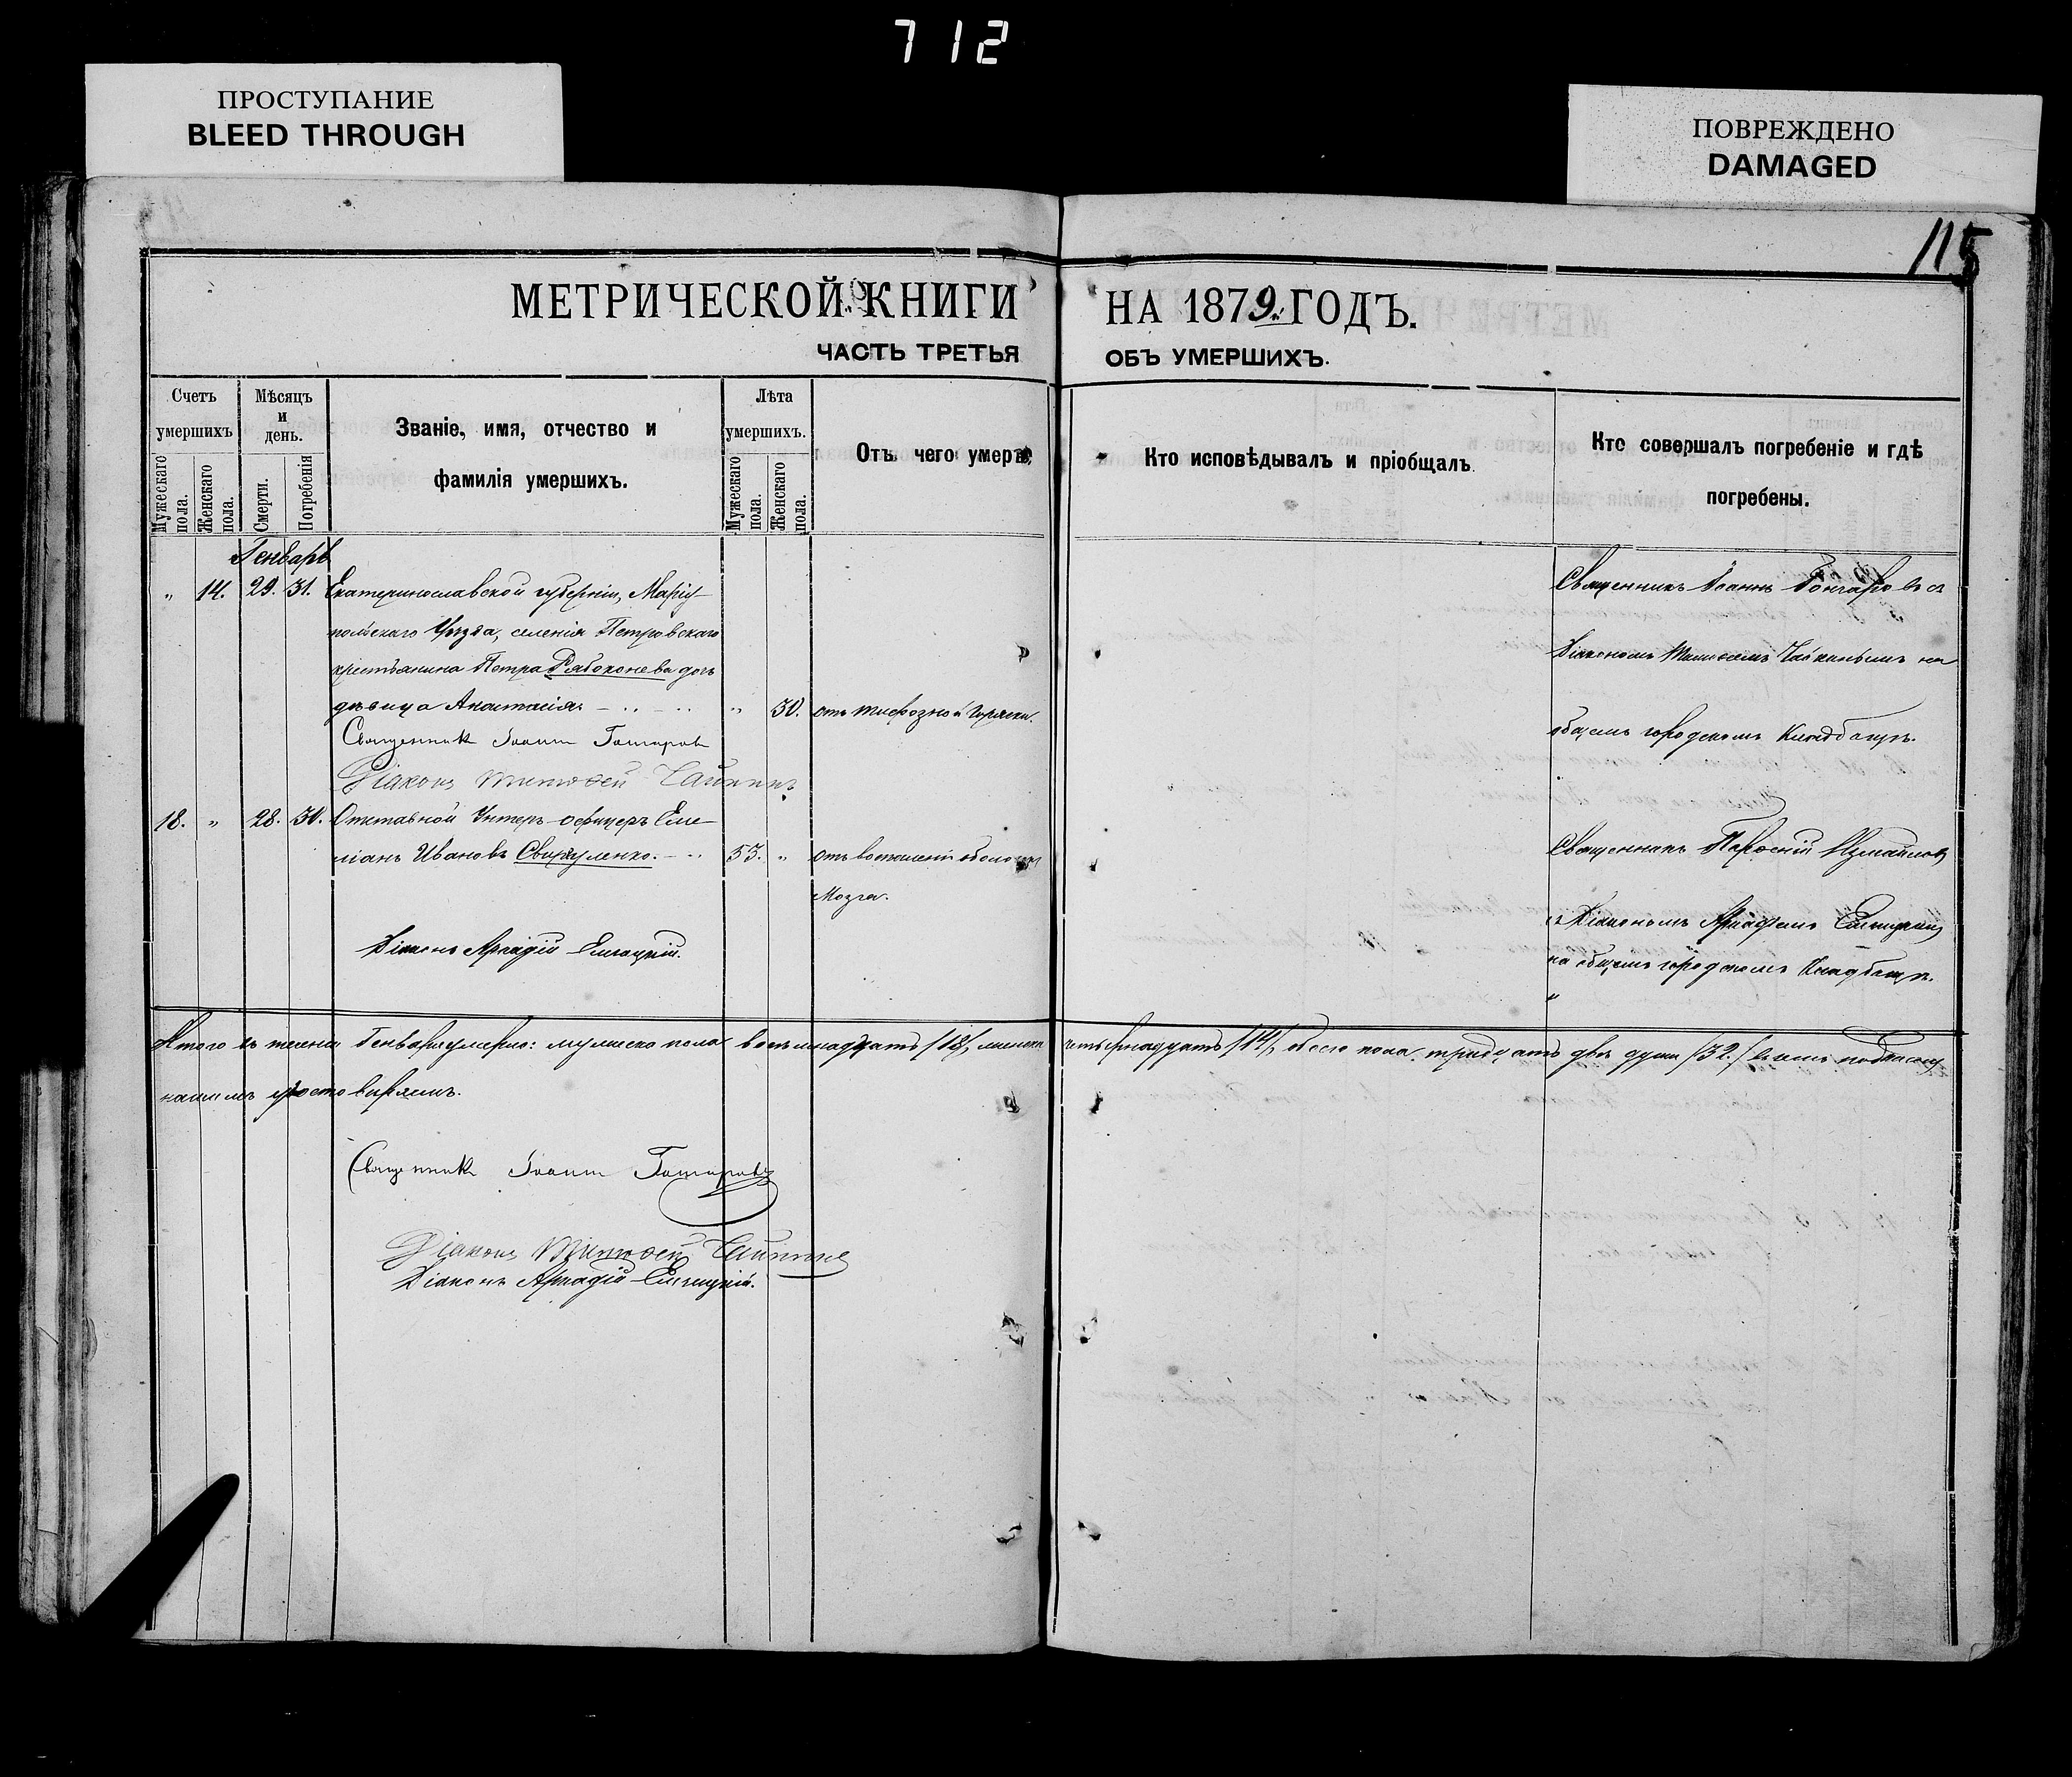 712
ПРОСТУПАНИЕ
BLEED THROUGH
ПОВРЕЖДЕНО
DAMAGED
115
МЕТРИЧЕСКОЙ КНИГИ НА 1879 ГОДЪ.
ЧАСТЬ ТРЕТЬЯ ОБЪ УМЕРШИХЪ.
Счетъ умершихъ
Мужескаго пола.
Женскаго пола.
Мѣсяцъ и день.
Смерти.
Погребенія
Званіе, имя, отчество и
фамилія умершихъ.
Лѣта умершихъ.
Мужескаго пола.
Женскаго пола.
Отъ чего умеръ
Кто исповѣдывалъ и пріобщалъ
Кто совершалъ погребеніе и гдѣ
погребены.
Генварь
" 14. 29. 31. Екатеринославской губерніи, Маріу-
польскаго Уѣзда, селенія Петровскаго
крестьянина Петра Рябоконева дочь
дѣвица Анастасія " 30. отъ тифозной горячки.
Священникъ Іоаннъ Гончаровъ съ
Діакономъ Тимофеемъ Чайкинымъ на
общемъ городскомъ кладбищѣ.
Священникъ Іоаннъ Гончаровъ
Діаконъ Тимофей Чайкинъ
18. " 28. 30. Отставной Унтеръ-офицеръ Еме-
ліанъ Ивановъ Свиргуленко. 53. " отъ воспаленія оболочки
Мозга.
Священникъ Парфеній Измайловъ
съ Діакономъ Аркадіемъ
на общемъ городскомъ Кладбищѣ.
Діаконъ Аркадій
Итого въ теченіи Генваря умерло: мужеска пола восьмнадцать /18/, женска четырнадцать /14/, обоего пола тридцать двѣ души /32./
нашимъ удостовѣряемъ.
Священникъ Іоаннъ Гончаровъ
Діаконъ Тимофей Чайкинъ
Діаконъ Аркадій